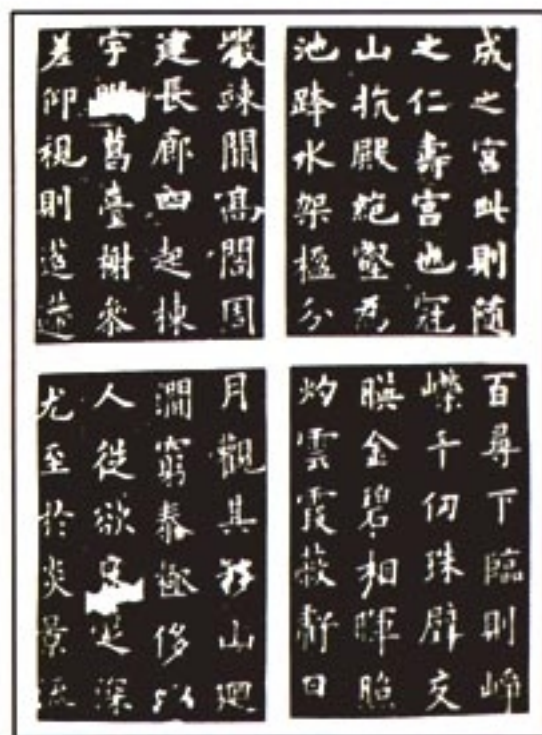 成之宮此則随
之仁壽宮也冠
山抗殿絕壑為
池跨水架楹分
巖竦闕高閣周
建長廊四起棟
宇葛臺榭參
差仰視則迢遰
百尋下臨則崢
嶸千仞珠壁交
暎金碧相暉照
灼雲霞蔽虧日
月觀其移山迴
澗窮泰極侈以
人從欲足深
尤至於炎景流